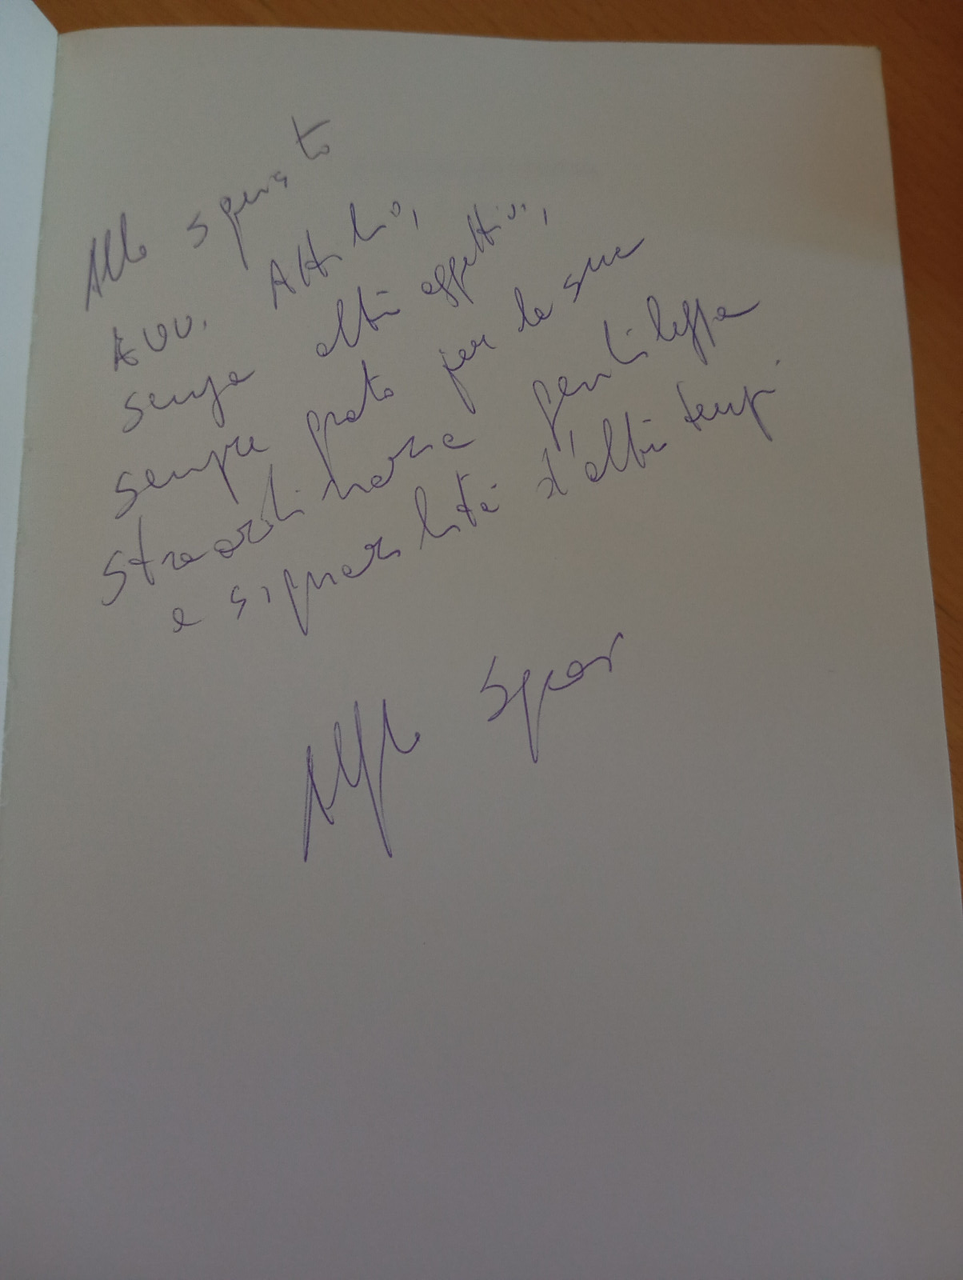 Allo squisito
Avv. Attilio,
senza altri aggettivi,
sempre grato per la sua
straordinaria gentilezza
e signorilità d'altri tempi